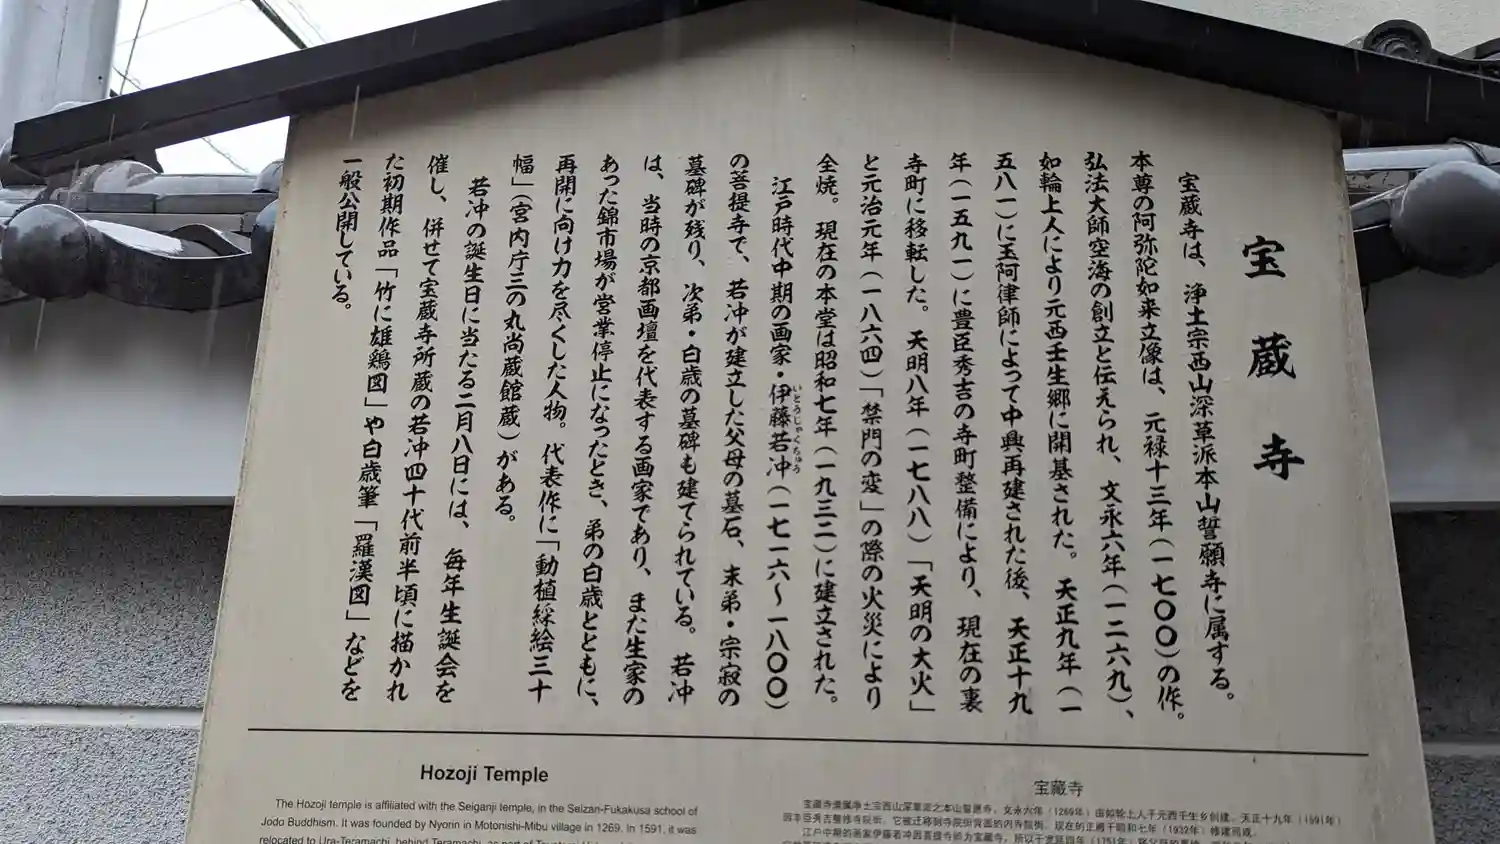 宝蔵寺
宝蔵寺は、浄土宗西山深草派本山誓願寺に属する。
本尊の阿弥陀如来立像は、元禄十三年(一七〇〇)の作。
弘法大師空海の創立と伝えられ、文永六年(一二六九)、
如輪上人により元西壬生郷に開基された。天正九年(一
五八一)に玉阿律師によって中興再建された後、天正十九
年(一五九一)に豊臣秀吉の寺町整備により、現在の裏
寺町に移転した。天明八年(一七八八)「天明の大火」
と元治元年(一八六四)「禁門の変」の際の火災により
全焼。現在の本堂は昭和七年(一九三二)に建立された。
江戸時代中期の画家・伊藤若冲(一七一六〜一八〇〇)
いとうじゃくちゅう
の菩提寺で、若冲が建立した父母の墓石、末弟・宗寂の
墓碑が残り、次弟・白歳の墓碑も建てられている。若冲
は、当時の京都画壇を代表する画家であり、また生家の
あった錦市場が営業停止になったとき、弟の白歳とともに、
再開に向け力を尽くした人物。代表作に「動植綵絵三十
幅」(宮内庁三の丸尚蔵館蔵)がある。
若冲の誕生日に当たる二月八日には、毎年生誕会を
催し、併せて宝蔵寺所蔵の若冲四十代前半頃に描かれ
た初期作品「竹に雄鶏図」や白歳筆「羅漢図」などを
一般公開している。
Hozoji Temple
The Hozoji temple is affiliated with the Seiganji temple, in the Seizan-Fukakusa school of
Jodo Buddhism. It was founded by Nyorin in Motonishi-Mibu village in 1269. In 1591, it was
relocated to Ura-Teramachi, behind Teramachi, as part of
宝藏寺
宝藏寺隶属净土宗西山深草派之本山誓愿寺。文永六年(1269年)由如轮上人于元西壬生乡创建。天正十九年(1591年)